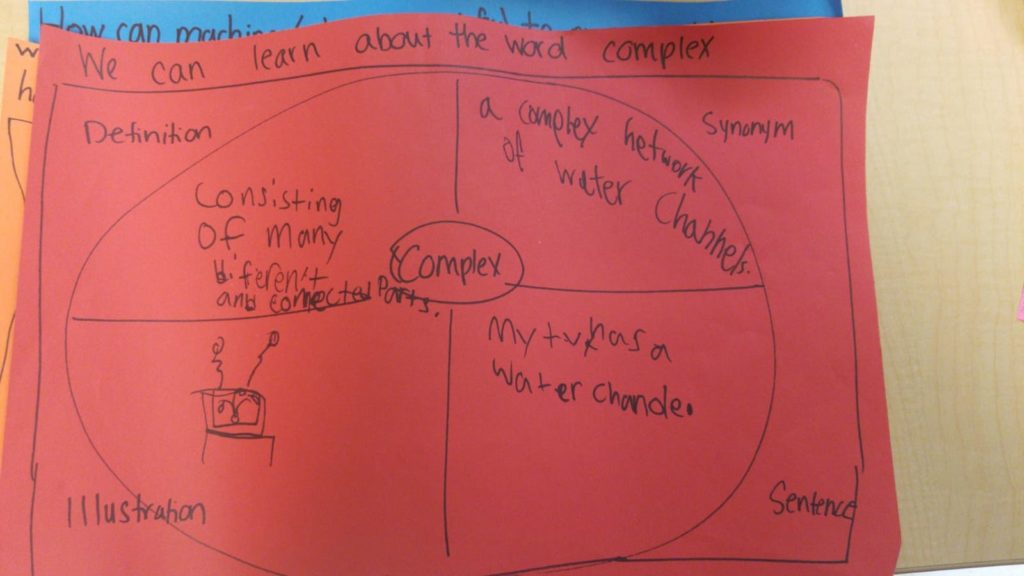 How can
We can learn about the word complex
Definition
Consisting
of many
diferent
and connected Parts.
a complex network
of water Channels.
Synonym
Complex
My tv has a
water chande.
Illustration
Sentence